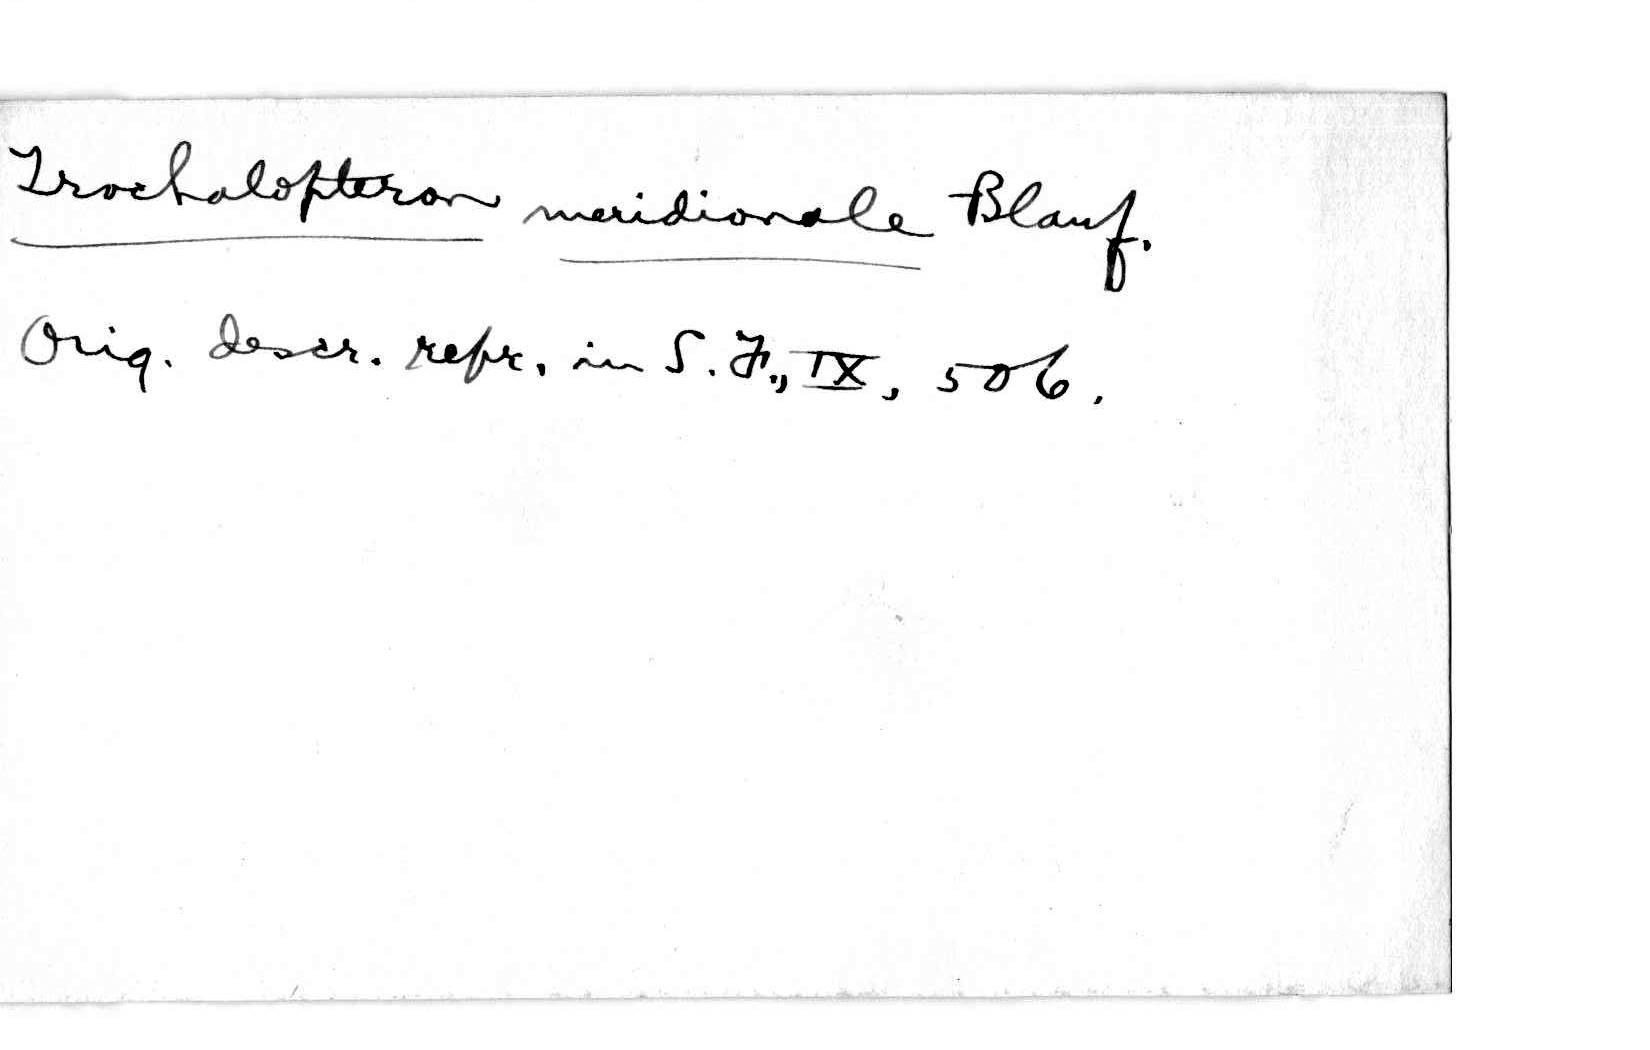 Trochalopteron meridionale Blanf.
Orig. descr. repr. in S. F., IX, 506.